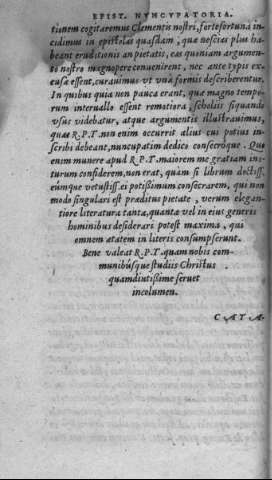 EPIST. NVNCVPATORIA.
tionem cogitaremus Clementis nostri, forte fortuna in
cidimus in epistolas quasdam, quæ nescias plus ha
beant eruditionis an pietatis, eas quoniam argumen
to nostro magnopere conuenirent, nec ante typis ex-
cusæ essent, curauimus vt vnà formis describerentur.
In quibus quia non pauca erant, quæ magno tempo-
rum interuallo essent remotiora, scholiis sicubi
vsus videbatur, atque argumentis illustrauimus,
quæ R.P.T. non enim occurrit alius cui potius in-
scribi debeant, nuncupatim dedico consecróque. Quo
enim munere apud R.P.T. maiorem me gratiam ini-
turum confiderem, non erat, quàm si librum doctiss.
eúmque vetustiss. ei potißimum consecrarem, qui non
modo singulari est præditus pietate, verum elegan-
tiore literatura tanta, quanta vel in eius generis
hominibus desiderari potest maxima, qui
omnem ætatem in literis consumpserunt.
Bene valeat R.P.T. quam nobis com-
munibúsque studiis Christus
quamdiutißime seruet
incolumen.
CATA-